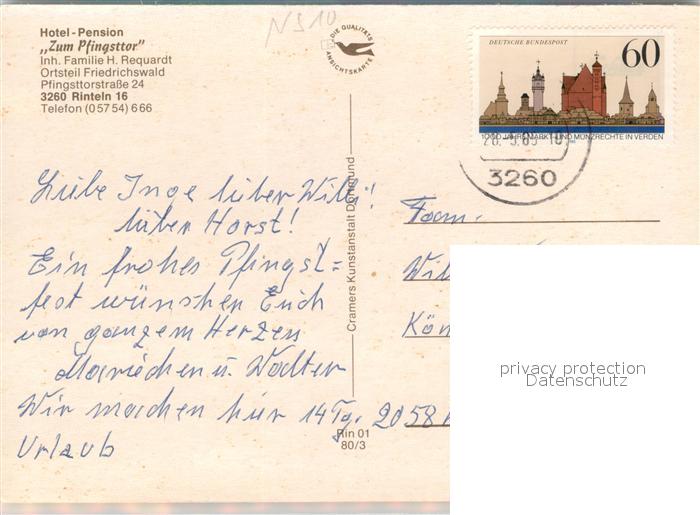 Hotel-Pension
„Zum Pfingsttor"
Inh. Familie H. Requardt
Ortsteil Friedrichswald
Pfingsttorstraße 24
3260 Rinteln 16
Telefon (05754) 666
N310
DIE QUALITÄTS
ANSICHTSKARTE
DEUTSCHE BUNDESPOST
60
1000 JAHRE MARKT- UND MÜNZRECHTE IN VERDEN
3260
Liebe Inge lieber Willi!
lieber Horst!
Ein frohes Pfingst=
fest wünschen Euch
von ganzem Herzen
Mariechen u. Walter
Wir machen hier 14 Tg.
Urlaub
Cramers Kunstanstalt Dortmund
Rin 01
80/3
Fam.
Wil
Kön
2058
privacy protection
Datenschutz